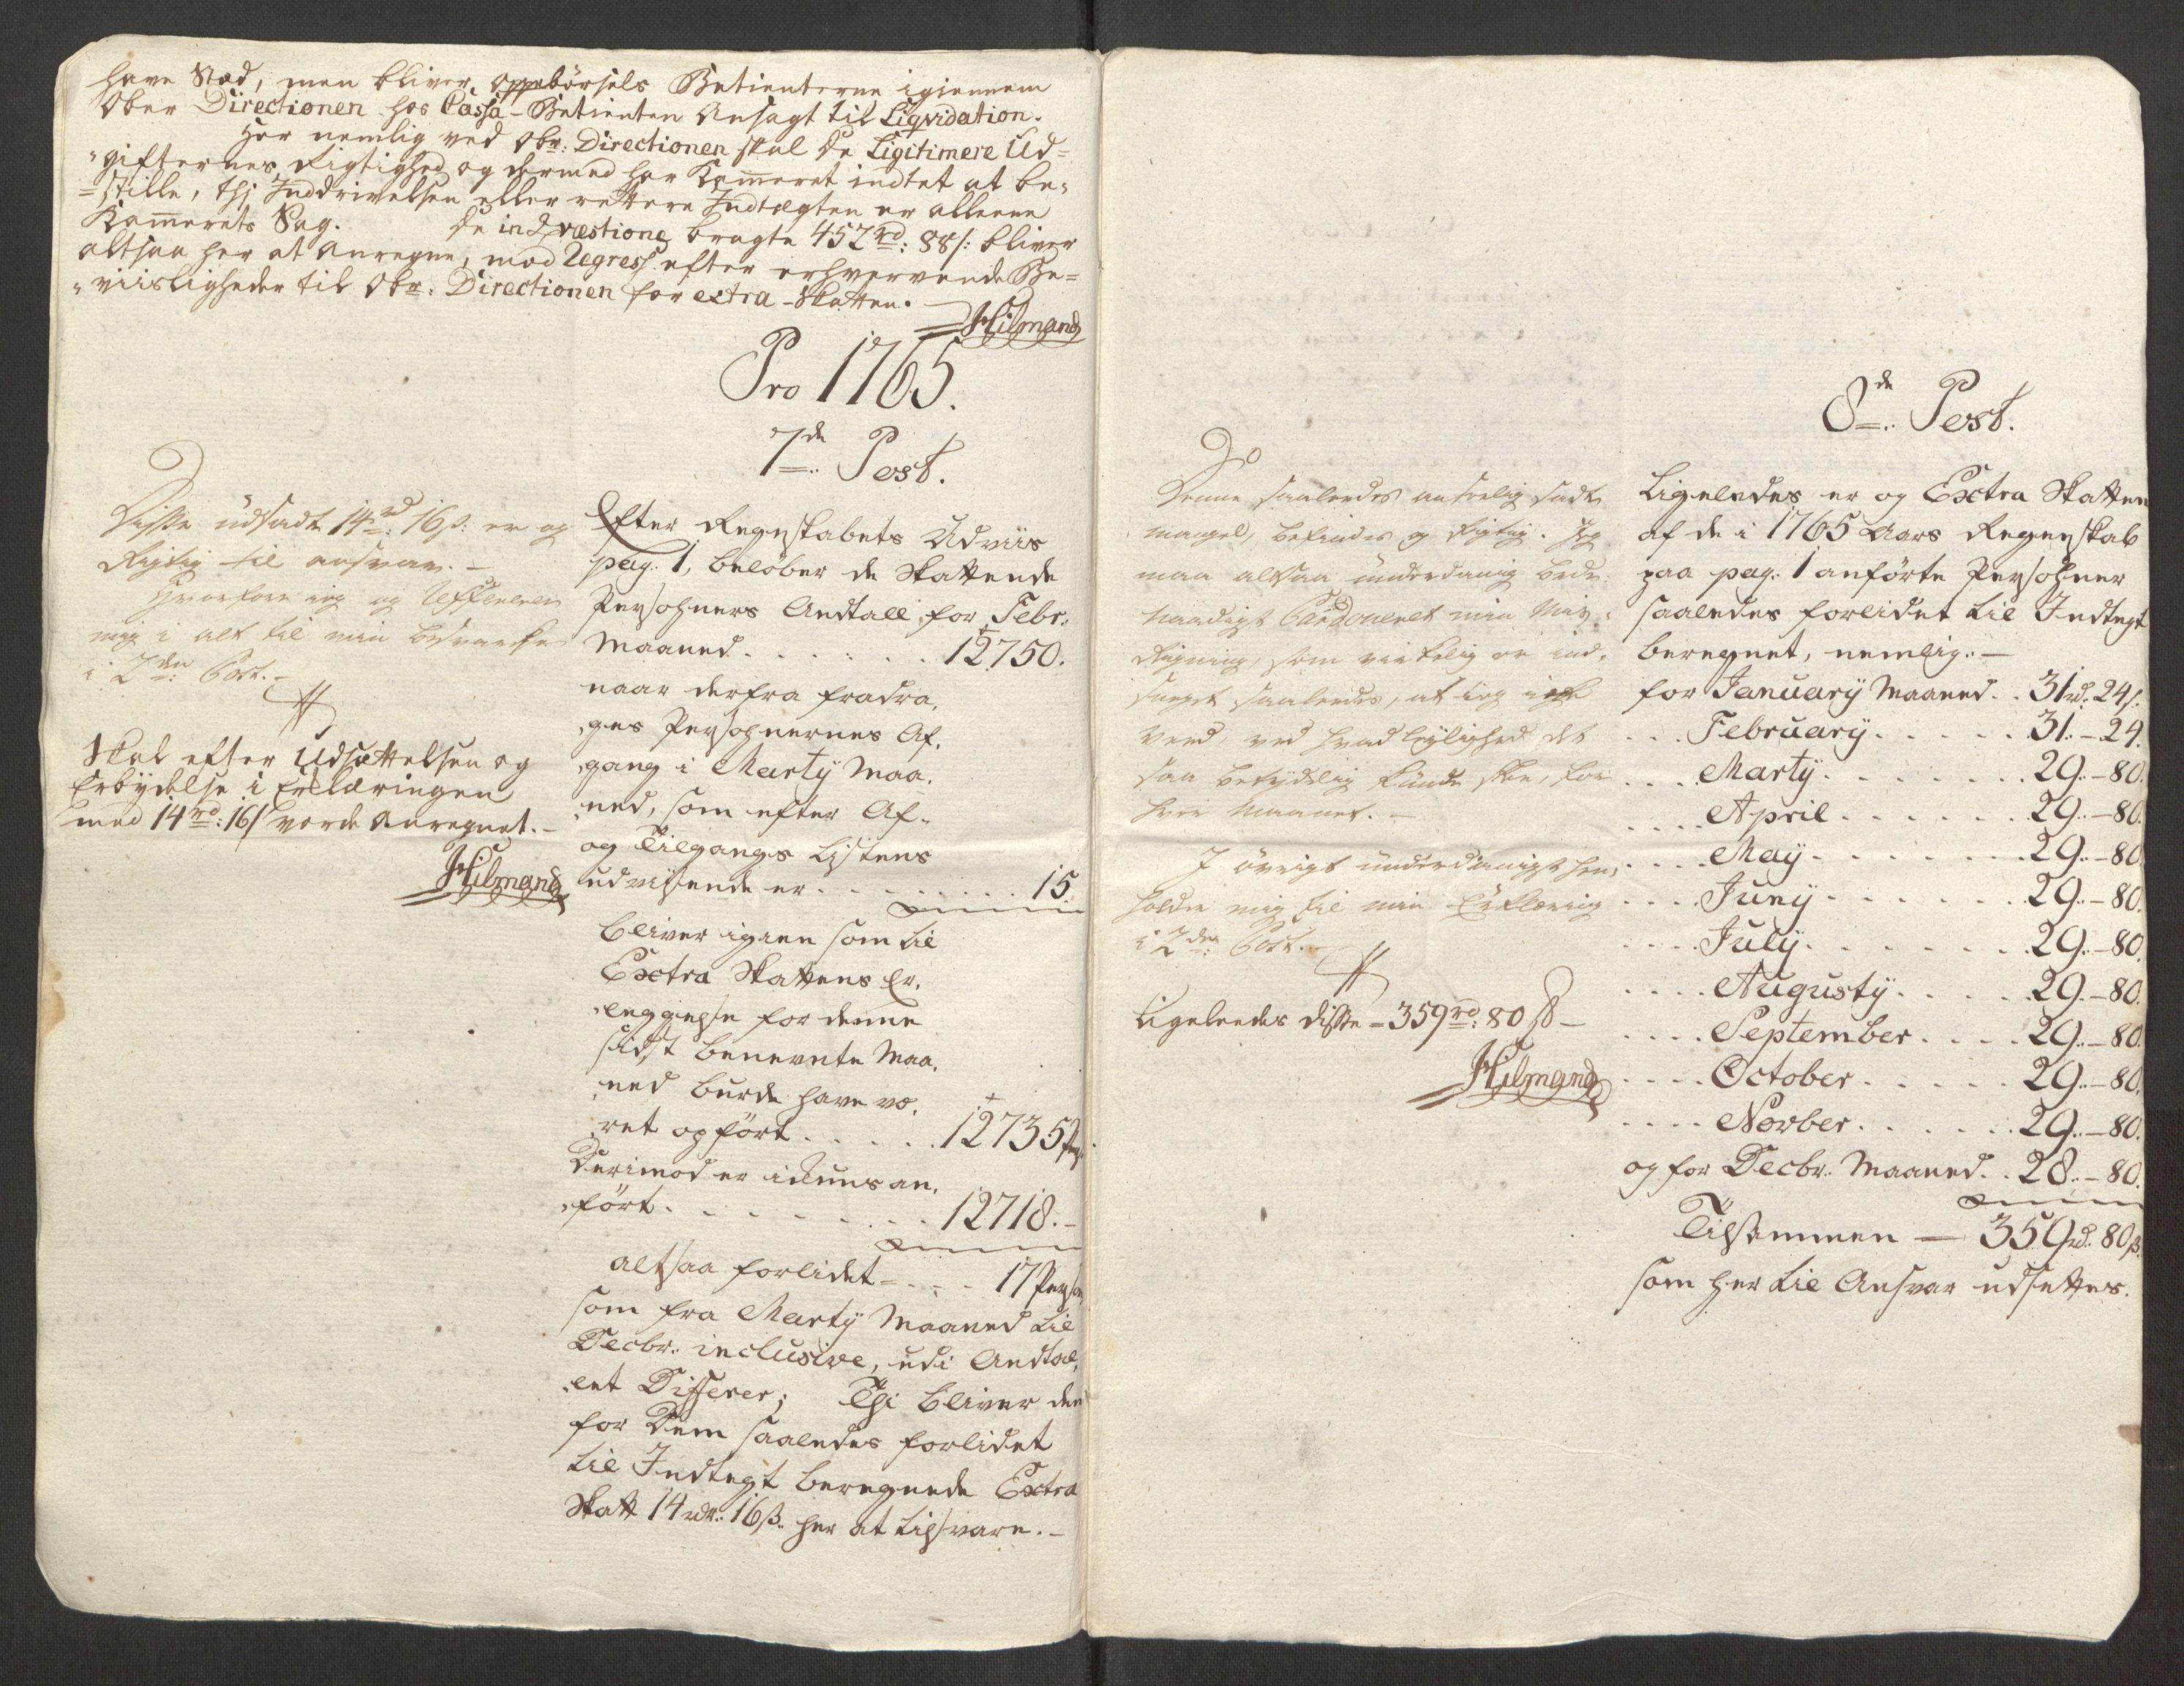 have Stæd, men bliver, Oppebörsels Betienterne igiennem
Ober Directionen hos Cassa-Betienten Ansagt til Liqvidation.
Her nemlig ved Obr: Directionen skal de Ligitimere Ud-
gifternes Rigtighed og dermed har Kammeret indtet at be-
stille, thj Inddrivelsen eller rettere Indtægten er alleene
Kammerets Sag. De in Qvæstione bragte 457rd: 88s: bliver
altsaa her at Anregne, mod Regress efter erhvervende Be-
viisligheder til Obr: Directionen for extra-Skatten.
Hilmand
Pro 1765.
7de Post.
Disse udsadt 14rd: 16s: er og
Rigtig til ansvar.
Hvorfore ieg og Refererer
mig i alt til min besvarelse
i 2den Post.
Skal efter Udsættelsen og
Erbydelse i Erklæringen
med 14rd: 16s vorde Anregnet.
Hilmand
Efter Regnskabets Udviis
pag. 1, beløber de Skattende
Persohners Andtall for Febr.
Maaned . . . . . . . 12750.
naar derfra fradra-
ges Persohnernes Af-
gang i Marty Maa-
ned, som efter Af-
og Tilgangs Listens
udvisende er . . . . . . . . 15
bliver igien som til
Extra Skattens Er-
leggelse for denne
sidst benevnte Maa-
ned burde have væ-
ret opført . . . . . 12735 Pers.
Derimod er ickuns an-
ført . . . . . . . . 12718.
altsaa forlidet . . . 17 Pers.
som fra Marty Maaned til
Decbr. inclusive, udi Andtal-
let Differer; Thi bliver den
for Dem saaledes forlidet
til Indtegt beregnede Extra
Skatt 14 rdr. 16s. her at tilsvare.
8de Post.
Denne saaledes udsadt
mangel, befindes og Rigtig. Jeg
maa altsaa underdanig bede
naadigst Pardoneret min
Rigning, som virkelig er ind-
sneget saaledes, at ieg icke
veed, ved hvad leylighed det
saa betydelig kunde skee, for
hver Maanet.
I övrigt underdanigst hen-
holder mig til min Erklæring
i 2den Post.
Ligeleedes disse 359rd: 80 s
Hilmand
Ligeledes er og Extra Skatten
af de i 1765 Aars Regenskab
paa pag. 1 anførte Persohner
saaledes forlidet til Indtegt
beregnet, nemlig:
for January Maaned . . 31rd. 24s.
. . . February . . . . . 31. - 24.
. . . . Marty . . . . . . . 29. - 80.
. . . . April . . . . . . . 29. - 80.
. . . . May . . . . . . . 29. - 80.
. . . . Juny . . . . . . . 29. - 80.
. . . . July . . . . . . . 29. - 80.
. . . . Augusty . . . . . 29. - 80.
. . . . September . . . . 29. - 80.
. . . . October . . . . . 29. - 80.
. . . . Novber . . . . . . 29. - 80.
og for Decbr. Maaned . . 28. - 80.
Tilsammen — 359rd. 80s.
som her til Ansvar udsettes.